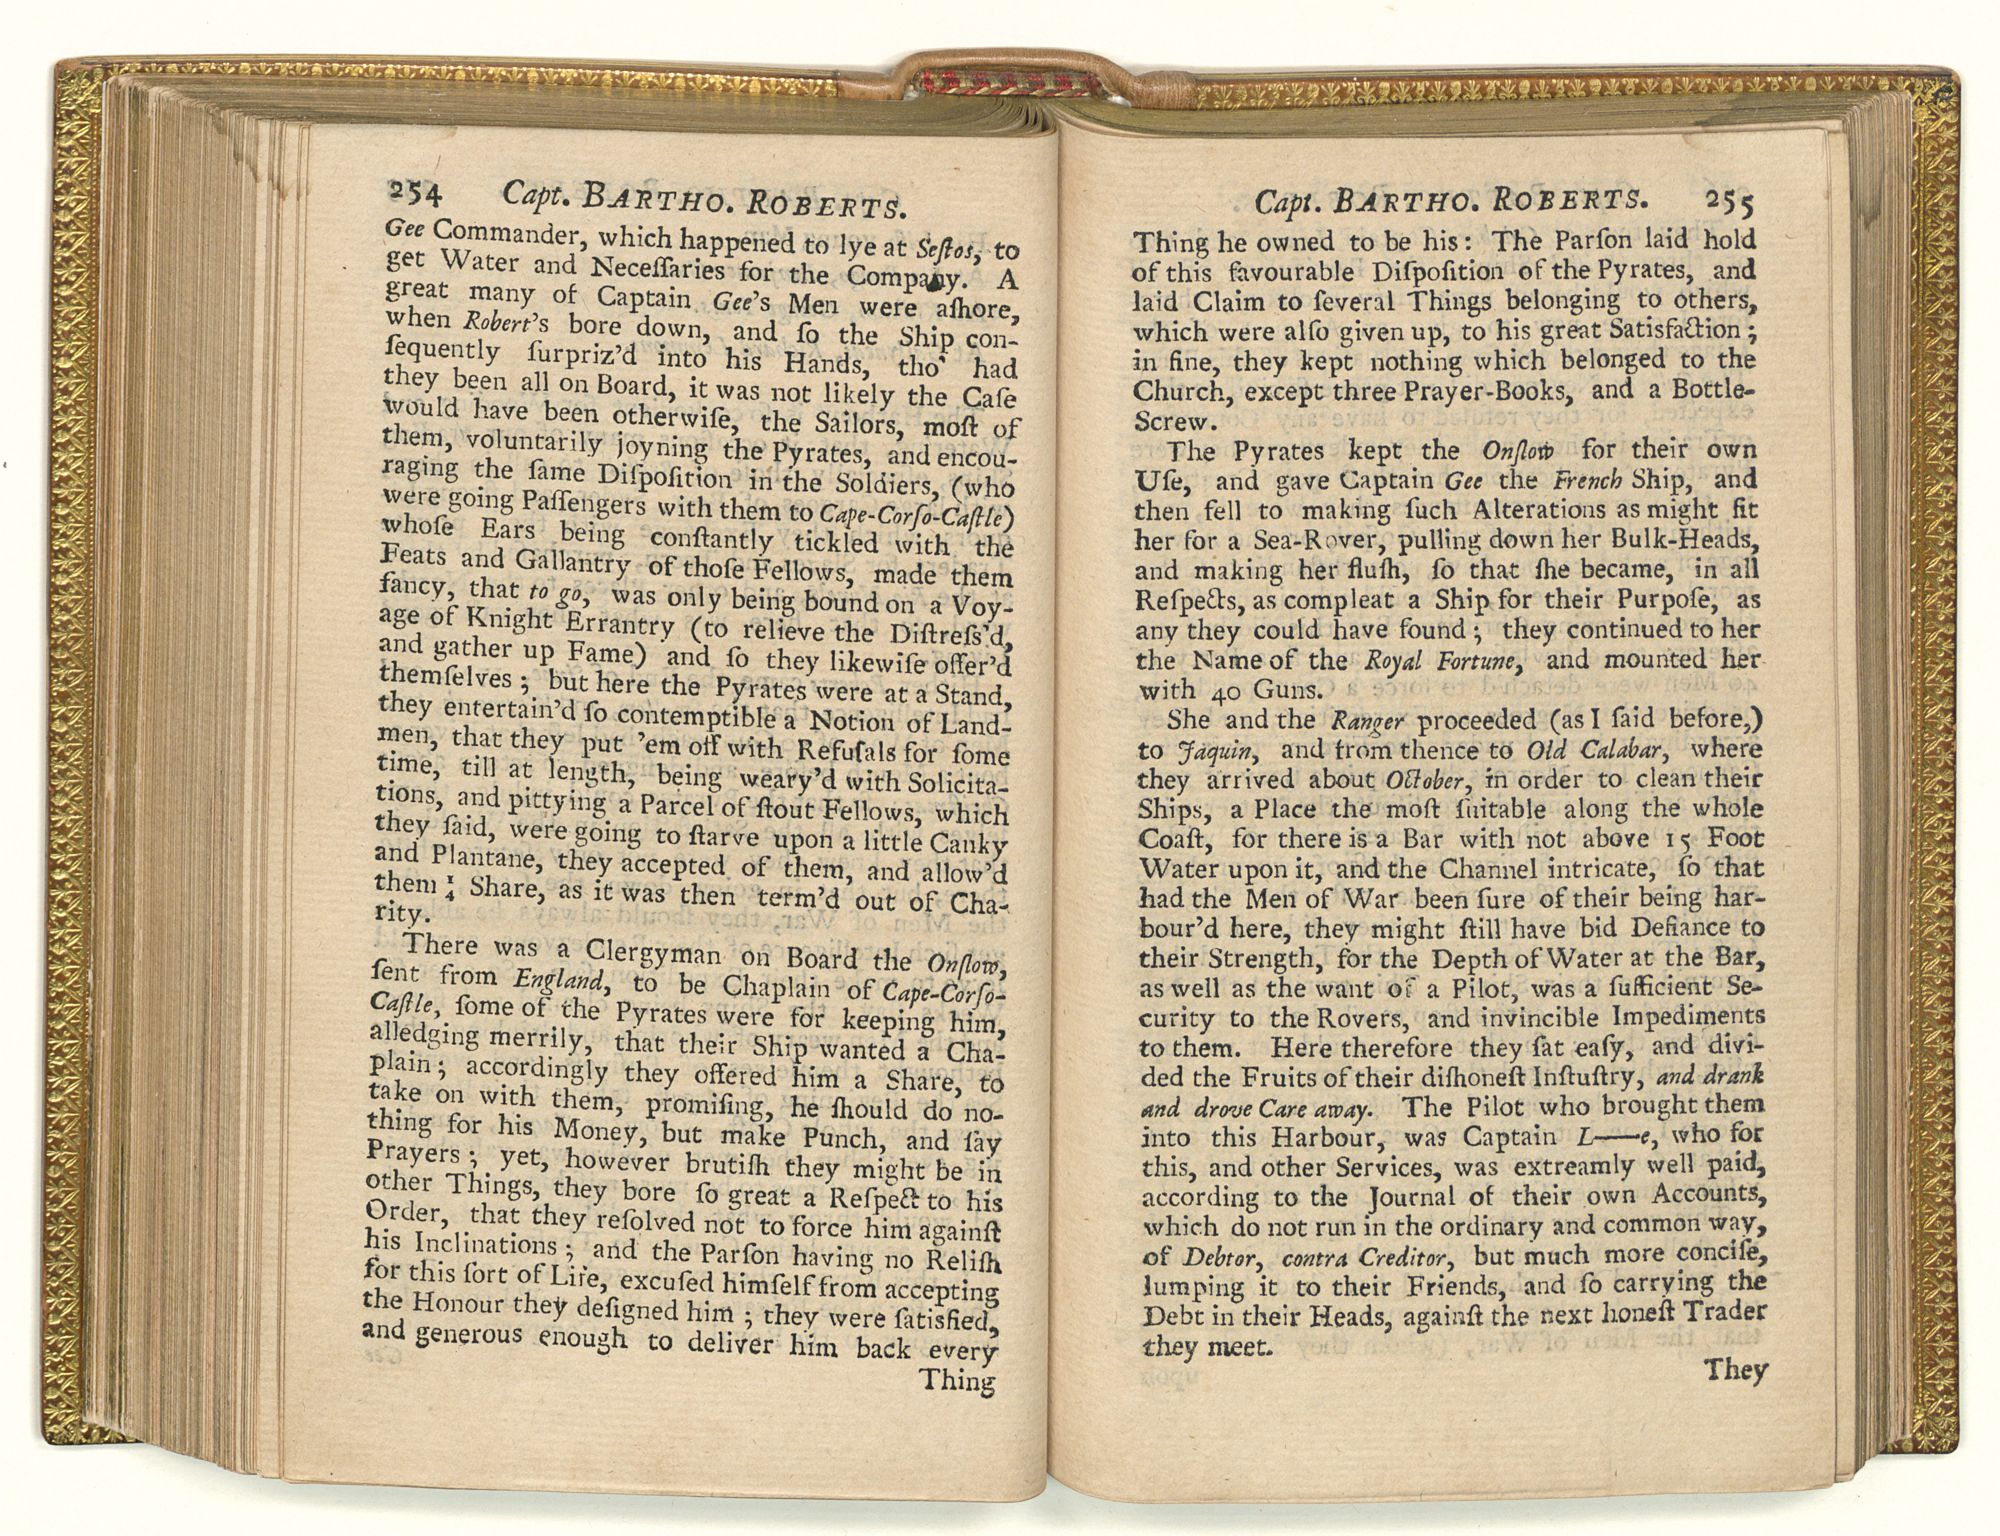 254 Capt. BARTHO. ROBERTS.
Gee Commander, which happened to lye at Seſtos, to
get Water and Neceſſaries for the Company. A
great many of Captain Gee's Men were aſhore,
when Robert's bore down, and ſo the Ship con-
ſequently ſurpriz'd into his Hands, tho' had
they been all on Board, it was not likely the Caſe
would have been otherwiſe, the Sailors, moſt of
them, voluntarily joyning the Pyrates, and encou-
raging the ſame Diſpoſition in the Soldiers, (who
were going Paſſengers with them to Cape-Corſo-Caſtle)
whoſe Ears being conſtantly tickled with the
Feats and Gallantry of thoſe Fellows, made them
fancy, that to go, was only being bound on a Voy-
age of Knight Errantry (to relieve the Diſtreſs'd,
and gather up Fame) and ſo they likewiſe offer'd
themſelves; but here the Pyrates were at a Stand,
they entertain'd ſo contemptible a Notion of Land-
men, that they put 'em off with Refuſals for ſome
time, till at length, being weary'd with Solicita-
tions, and pittying a Parcel of ſtout Fellows, which
they ſaid, were going to ſtarve upon a little Canky
and Plantane, they accepted of them, and allow'd
them ¼ Share, as it was then term'd out of Cha-
rity.
There was a Clergyman on Board the Onſlow,
ſent from England, to be Chaplain of Cape-Corſo-
Caſtle, ſome of the Pyrates were for keeping him,
alledging merrily, that their Ship wanted a Cha-
plain; accordingly they offered him a Share, to
take on with them, promiſing, he ſhould do no-
thing for his Money, but make Punch, and ſay
Prayers; yet, however brutiſh they might be in
other Things, they bore ſo great a Reſpect to his
Order, that they reſolved not to force him againſt
his Inclinations; and the Parſon having no Reliſh
for this ſort of Life, excuſed himſelf from accepting
the Honour they deſigned him; they were ſatisfied,
and generous enough to deliver him back every
Thing
Capt. BARTHO. ROBERTS. 255
Thing he owned to be his: The Parſon laid hold
of this favourable Diſpoſition of the Pyrates, and
laid Claim to ſeveral Things belonging to others,
which were alſo given up, to his great Satisfaction;
in fine, they kept nothing which belonged to the
Church, except three Prayer-Books, and a Bottle-
Screw.
The Pyrates kept the Onſlow for their own
Uſe, and gave Captain Gee the French Ship, and
then fell to making ſuch Alterations as might fit
her for a Sea-Rover, pulling down her Bulk-Heads,
and making her fluſh, ſo that ſhe became, in all
Reſpects, as compleat a Ship for their Purpoſe, as
any they could have found; they continued to her
the Name of the Royal Fortune, and mounted her
with 40 Guns.
She and the Ranger proceeded (as I ſaid before,)
to Jaquin, and from thence to Old Calabar, where
they arrived about October, in order to clean their
Ships, a Place the moſt ſuitable along the whole
Coaſt, for there is a Bar with not above 15 Foot
Water upon it, and the Channel intricate, ſo that
had the Men of War been ſure of their being har-
bour'd here, they might ſtill have bid Defiance to
their Strength, for the Depth of Water at the Bar,
as well as the want of a Pilot, was a ſufficient Se-
curity to the Rovers, and invincible Impediments
to them. Here therefore they ſat eaſy, and divi-
ded the Fruits of their diſhoneſt Inſtuſtry, and drank
and drove Care away. The Pilot who brought them
into this Harbour, was Captain L——e, who for
this, and other Services, was extreamly well paid,
according to the Journal of their own Accounts,
which do not run in the ordinary and common way,
of Debtor, contra Creditor, but much more conciſe,
lumping it to their Friends, and ſo carrying the
Debt in their Heads, againſt the next honeſt Trader
they meet.
They